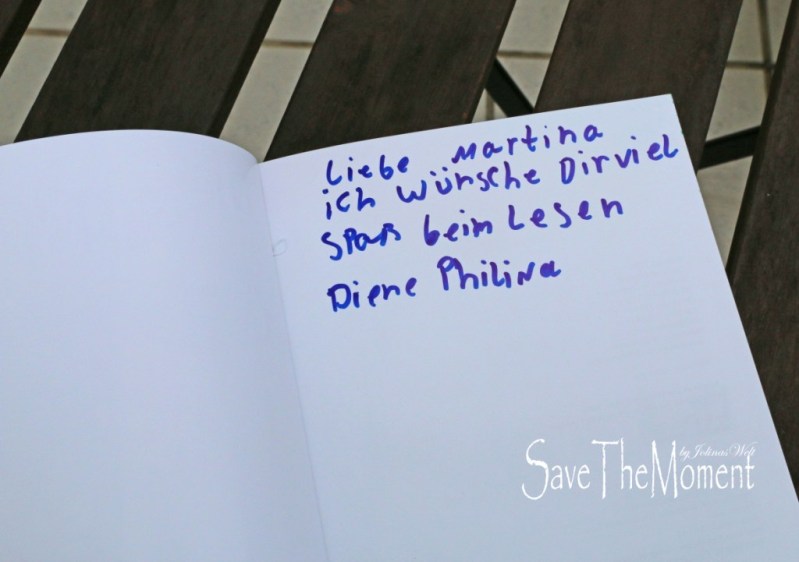 Liebe Martina
ich wünsche Dir viel
Spaß beim Lesen
Diene Philina
by Jolinas Welt
Save The Moment